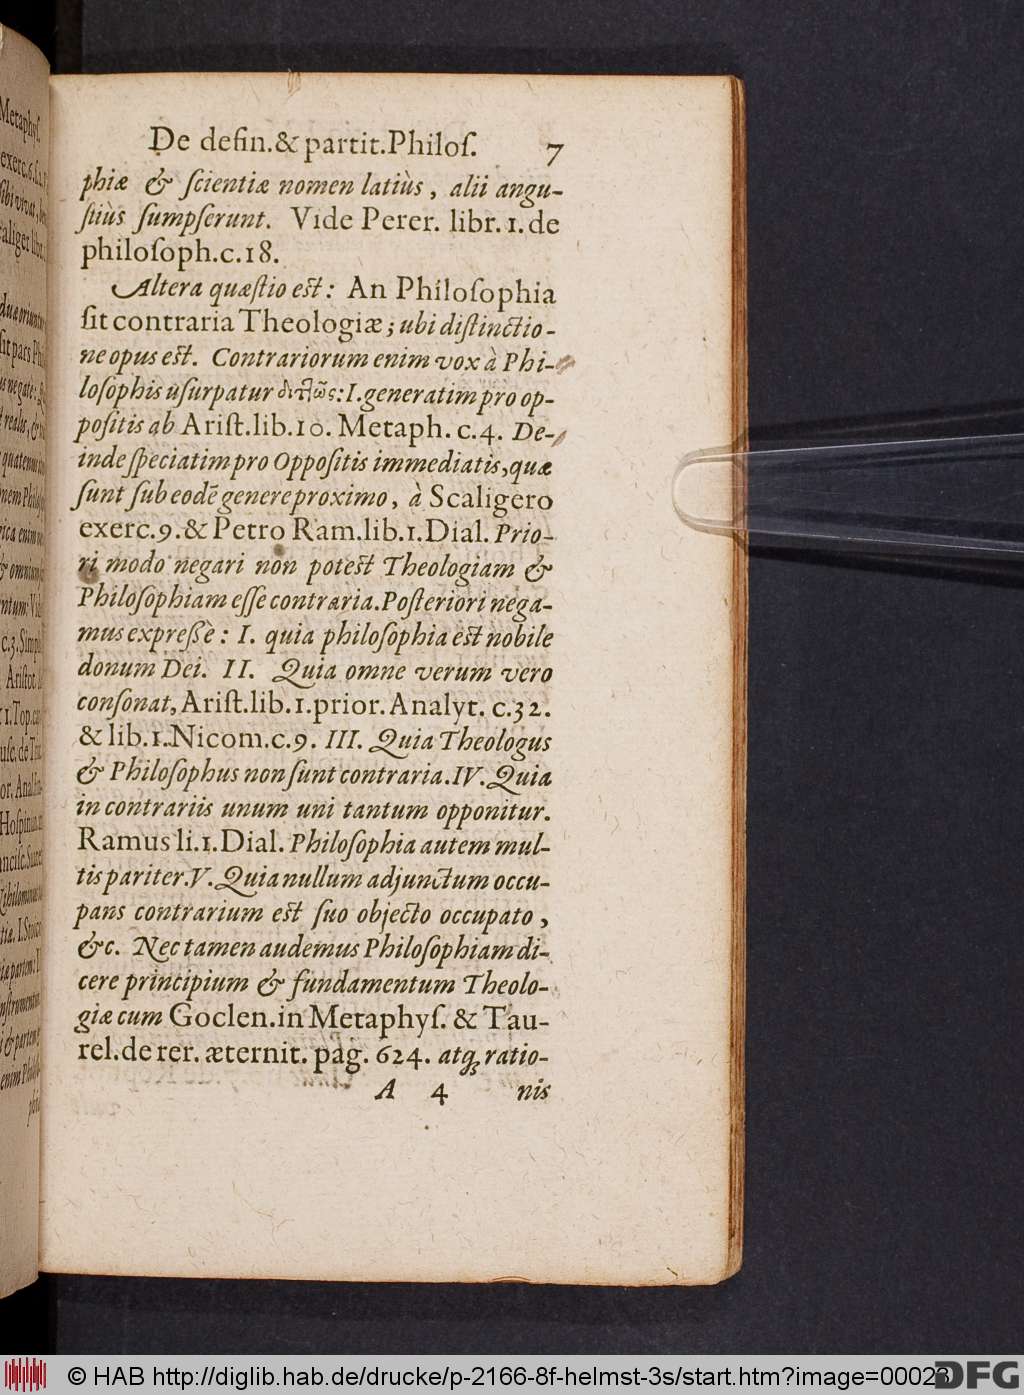 De defin.& partit.Philoſ. 7
phiæ & ſcientiæ nomen latiùs, alii angu-
ſtiùs ſumpſerunt. Vide Perer. libr. 1. de
philoſoph.c.18.
Altera quæſtio eſt: An Philoſophia
ſit contraria Theologiæ; ubi diſtinctio-
ne opus eſt. Contrariorum enim vox à Phi-
loſophis uſurpatur διττῶς: I. generatim pro op-
poſitis ab Ariſt.lib.10. Metaph. c.4. De-
inde ſpeciatim pro Oppoſitis immediatis, quæ
ſunt ſub eodē genere proximo, à Scaligero
exerc.9.& Petro Ram.lib.1.Dial. Prio-
ri modo negari non poteſt Theologiam &
Philoſophiam eſſe contraria. Poſteriori nega-
mus expreſſè: I. quia philoſophia eſt nobile
donum Dei. II. Quia omne verum vero
conſonat, Ariſt.lib.1.prior.Analyt. c.32.
& lib.1.Nicom.c.9. III. Quia Theologus
& Philoſophus non ſunt contraria. IV. Quia
in contrariis unum uni tantum opponitur.
Ramus li.1.Dial. Philoſophia autem mul-
tis pariter. V. Quia nullum adjunctum occu-
pans contrarium eſt ſuo objecto occupato,
&c. Nec tamen audemus Philoſophiam di-
cere principium & fundamentum Theolo-
giæ cum Goclen.in Metaphyſ. & Tau-
rel.de rer. æternit. pag. 624. atq; ratio-
A 4 nis
© HAB http://diglib.hab.de/drucke/p-2166-8f-helmst-3s/start.htm?image=00023
DFG